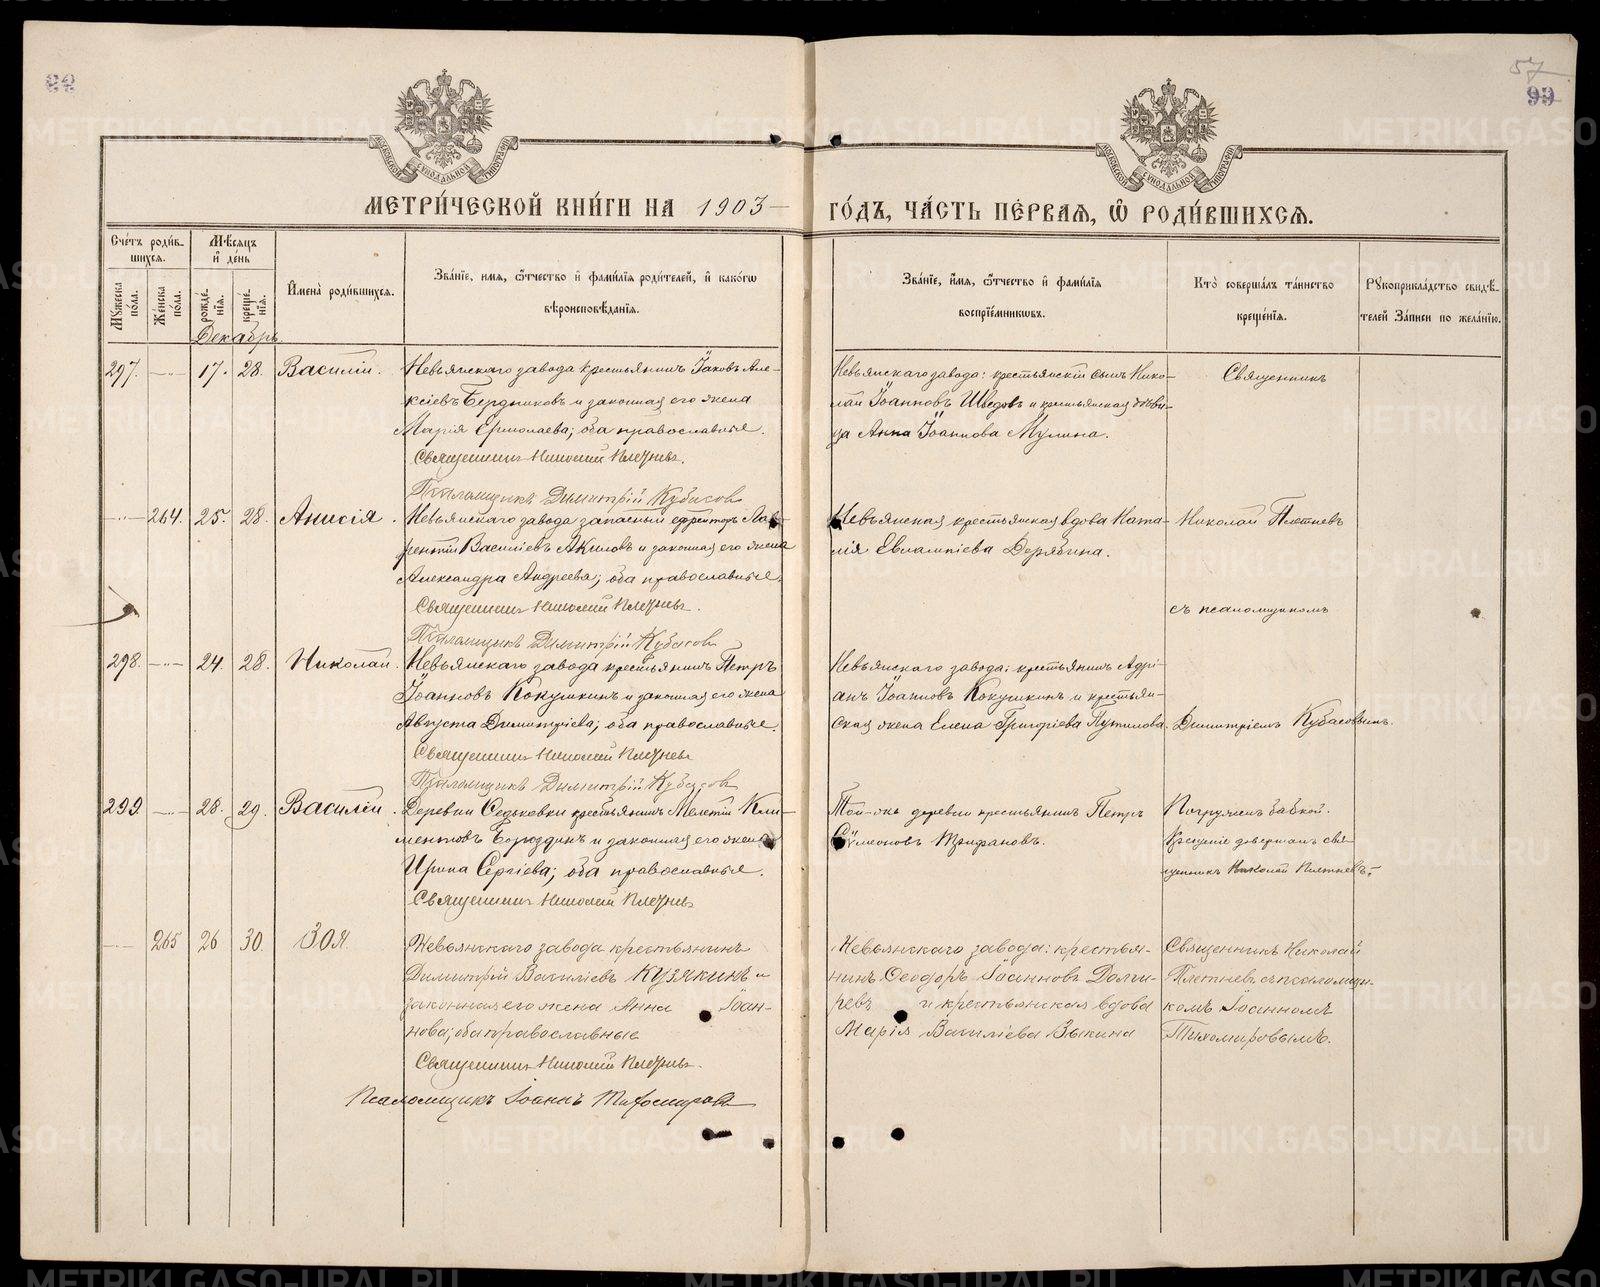 57
99
МОСКОВСКОЙ СѴНОДАЛЬНОЙ ТИПОГРАФІИ
МОСКОВСКОЙ СѴНОДАЛЬНОЙ ТИПОГРАФІИ
МЕТРИ́ЧЕСКОЙ КНИ́ГИ НА 1903 ГО́ДЪ, ЧА́СТЬ ПЕ́РВАѦ, Ѡ҆ РОДИ́ВШИХСѦ.
Сче́тъ роди́в-
шихсѧ.
Мꙋ́жеска по́ла.
Же́нска по́ла.
Мѣ́сѧцъ
и҆ де́нь
рожде́-
нїѧ.
креще́-
нїѧ.
И҆мена̀ роди́вшихсѧ.
Зва́нїе, и҆́мѧ, ѻ҆́тчество и҆ фами́лїѧ роди́телей, и҆ како́гѡ
вѣроисповѣ́данїѧ.
Зва́нїе, и҆́мѧ, ѻ҆́тчество и҆ фами́лїѧ
воспрїе́мникѡвъ.
Кто̀ соверша́лъ та́инство
креще́нїѧ.
Рꙋкоприкла́дство свидѣ́-
телей За́писи по жела́нїю.
Декабрь.
297. 17. 28. Василій.
Невьянскаго завода крестьянинъ Іаковъ Але-
ксіевъ Бердниковъ и законная его жена
Марія Ермолаева; оба православные.
Священникъ Николай Плетневъ.
Псаломщикъ Димитрій Кубасовъ
Невьянскаго завода: крестьянскій сынъ Нико-
лай Іоанновъ Шведовъ и крестьянская дѣви-
ца Анна Іоаннова Мулина.
Священникъ
264. 25. 28. Анисія.
Невьянскаго завода запасный ефрейторъ Лав-
рентій Василіевъ Акиловъ и законная его жена
Александра Андреева; оба православные.
Священникъ Николай Плетневъ.
Псаломщикъ Димитрій Кубасовъ
Невьянская крестьянская вдова Ната-
лія Евлампіева Дерябина.
Николай Плетневъ
съ псаломщикомъ
298. 24. 28. Николай.
Невьянскаго завода крестьянинъ Петръ
Іоанновъ Кокушкинъ и законная его жена
Августа Димитріева; оба православные.
Священникъ Николай Плетневъ
Псаломщикъ Димитрій Кубасовъ
Невьянскаго завода: крестьянинъ Адрі-
анъ Іоанновъ Кокушкинъ и крестьян-
ская жена Елена Григоріева Путилова.
Димитріемъ Кубасовымъ.
299. 28. 29. Василій.
Деревни Седьковки крестьянинъ Мелетій Кли-
ментовъ Бороздинъ и законная его жена
Ирина Сергіева; оба православные.
Священникъ Николай Плетневъ
Той-же деревни крестьянинъ Петръ
Сѵмеоновъ Трифановъ.
Погруженъ бабкой.
Крещеніе довершалъ свя-
щенникъ Николай Плетневъ.
265 26 30. Зоя.
Невьянскаго завода крестьянинъ
Димитрій Василіевъ Кузякинъ и
законная его жена Анна Іоан-
нова; оба православные
Священникъ Николай Плетневъ.
Псаломщикъ Іоаннъ Тихомировъ
Невьянскаго завода: крестья-
нинъ Ѳеодоръ Іоанновъ Долги-
ревъ и крестьянская вдова
Марія Василіева Зыкина
Священникъ Николай
Плетневъ съ псаломщи-
комъ Іоанномъ
Тихомировымъ.